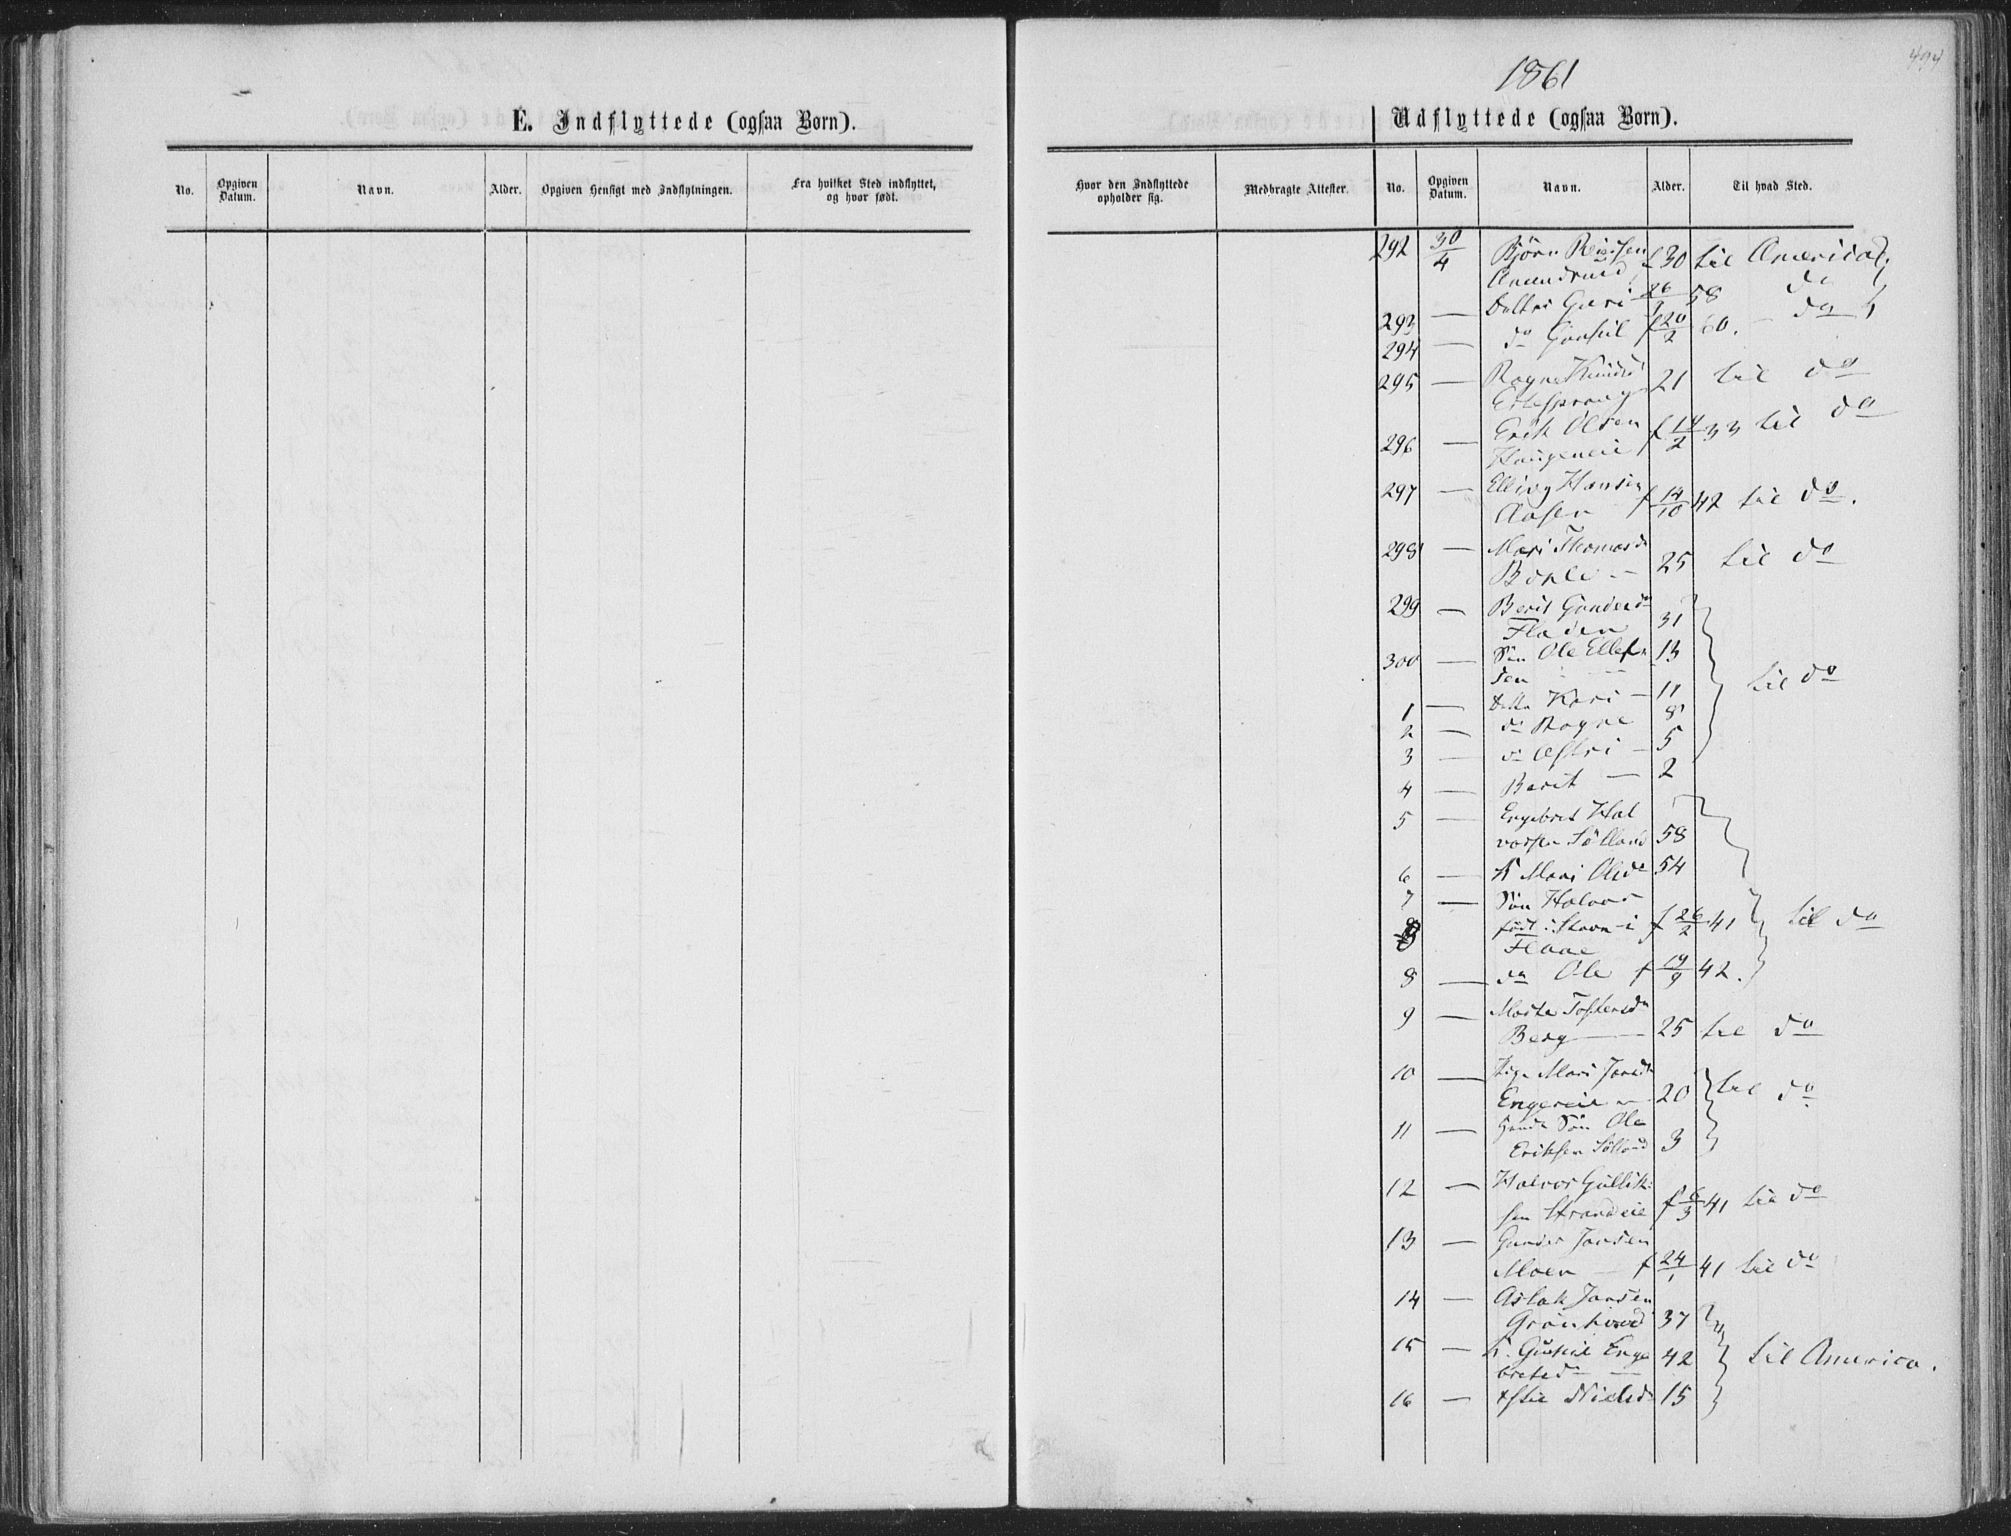 494
1861
E. Indflyttede (ogsaa Børn).
Udflyttede (ogsaa Børn).
No. Opgiven Datum. Navn. Alder. Opgiven Hensigt med Indflytningen. Fra hvilket Sted indflyttet, og hvor født.
Hvor den Indflyttede opholder sig. Medbragte Attester. No. Opgiven Datum. Navn. Alder. Til hvad Sted.
292 30/4 Bjørn
30 til America
Guri 26/3 58 do
293 —
do Gunhil f 20/2 60. – do
294 —
295 — Ragne Knudsd 21 til do
296 — Erik Olsen f 14/2 33 til do
Haugeneie
297 — Elling Hansen
Aasen f 14/10 42 til do.
298 — Mari Thomasd
25 til do
299 — Berit Gundersd
Fladen 31
300 — Søn Ole Ellef 13
sen
til do
1 — Kari — 11
2 — do Ragne 8
3 — do Astri — 5
4 — Berit — 2
5 — Engebret Hal
vorsen Sølland 58
6 — K Mari Olsd 54
7 — Søn Halvor
født i Stavn i f 26/2 41 til do
Flaae
8 — do Ole f 19/9 42.
9 — Tostensd
Berg — 25 til do
10 — Pige Mari
Engereie 20 til do
11 — Søn Ole
Eriksen Sølland 3
12 — Halvor Gullik
sen Strandeie f 6/3 41 til do
13 — Gunder
Moen f 24/1 41 til do
14 — Aslak
Grønhovd 37
15 — K. Gunhil Enge 42 til America.
bretsd
16 — Nielsd 15